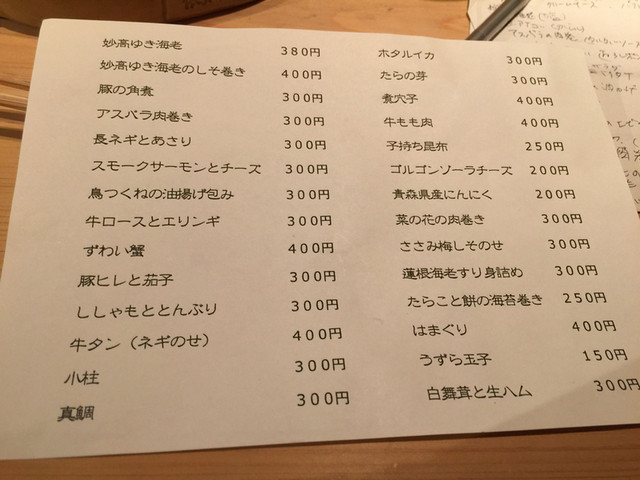 妙高ゆき海老 380円
妙高ゆき海老のしそ巻き 400円
豚の角煮 300円
アスパラ肉巻き 300円
長ネギとあさり 300円
スモークサーモンとチーズ 300円
鳥つくねの油揚げ包み 300円
牛ロースとエリンギ 300円
ずわい蟹 400円
豚ヒレと茄子 300円
ししゃもととんぶり 300円
牛タン（ネギのせ） 400円
小柱 300円
真鯛 300円
ホタルイカ 300円
たらの芽 300円
煮穴子 400円
牛もも肉 400円
子持ち昆布 250円
ゴルゴンゾーラチーズ 200円
青森県産にんにく 200円
菜の花の肉巻き 300円
ささみ梅しそのせ 300円
蓮根海老すり身詰め 300円
たらこと餅の海苔巻き 250円
はまぐり 400円
うずら玉子 150円
白舞茸と生ハム 300円